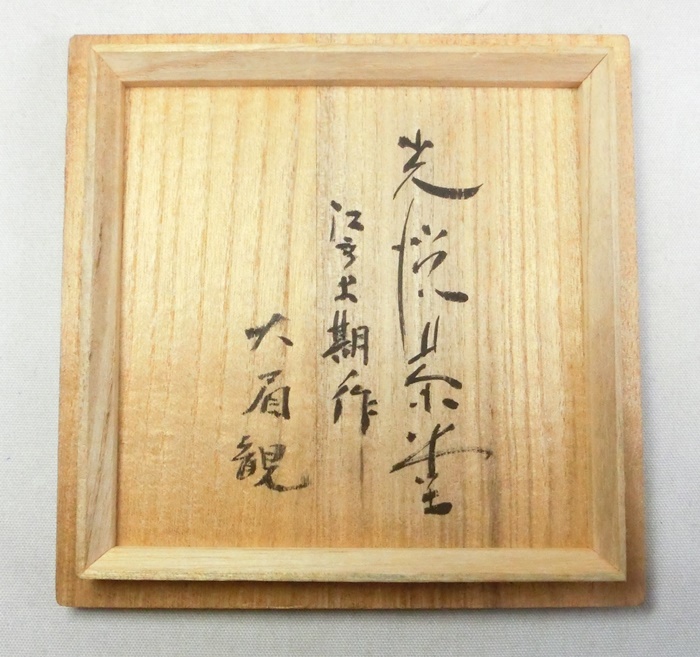 光悦茶
江戸期作
大眉観